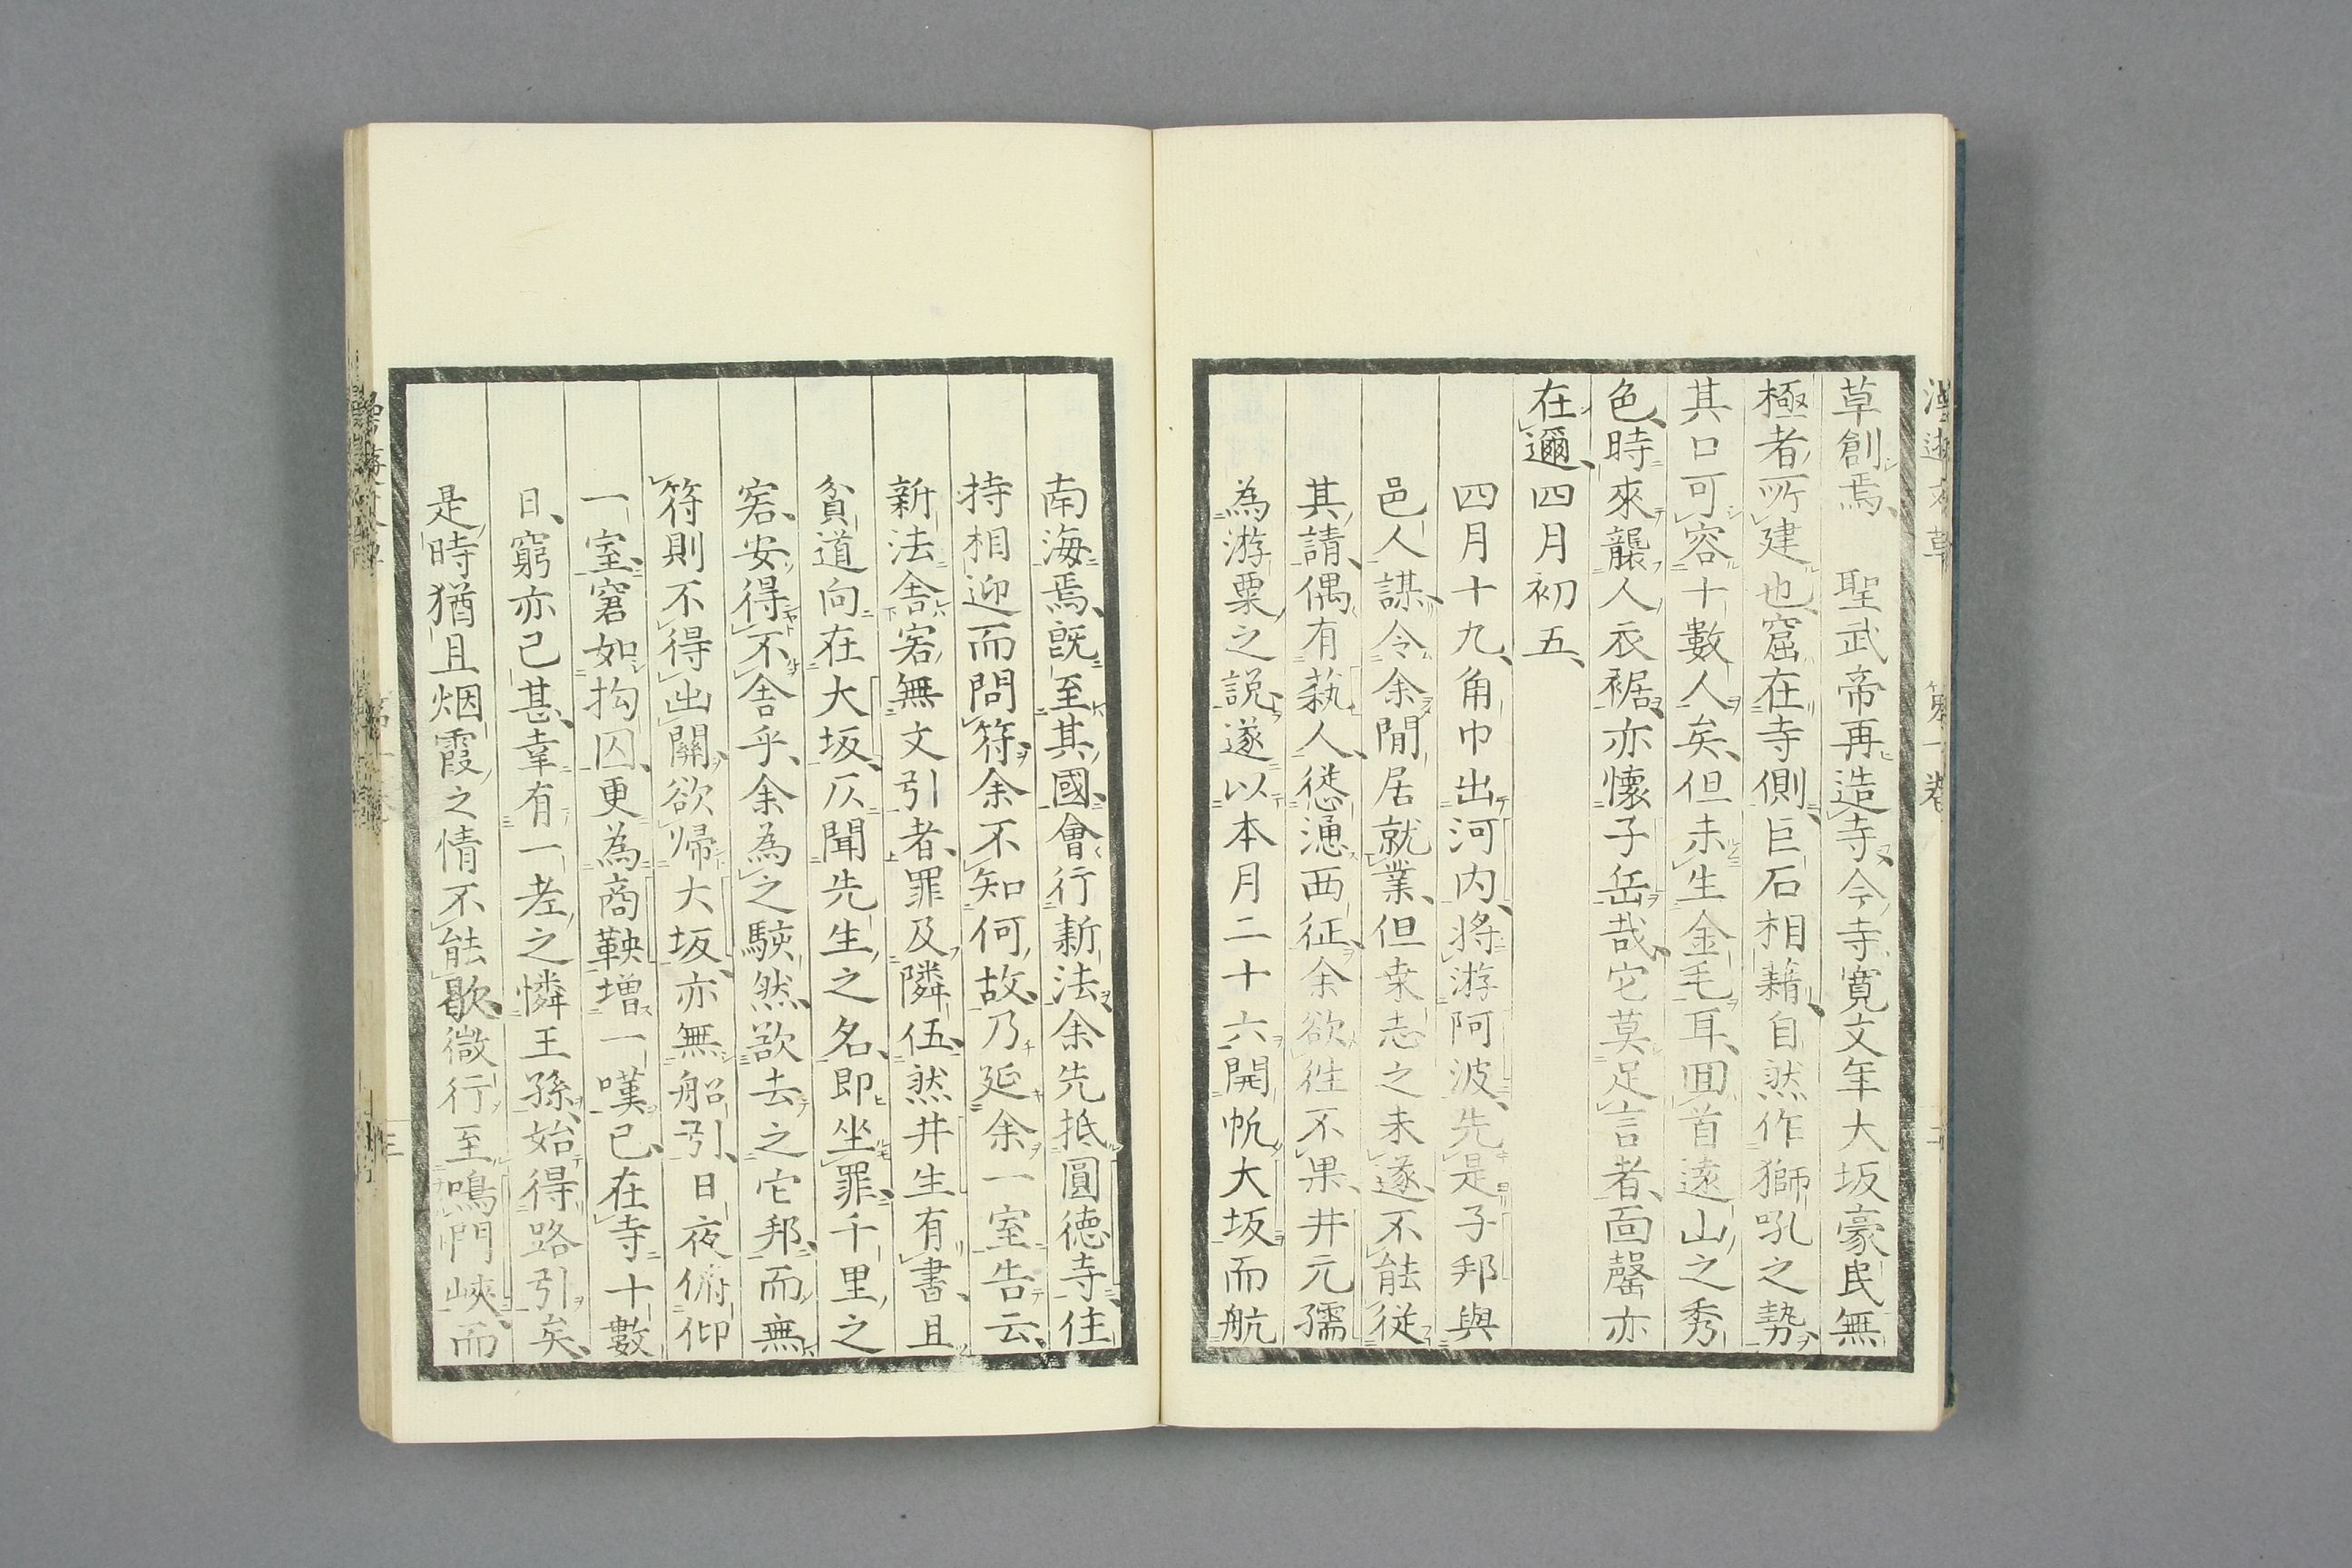 草創焉、　聖武帝再造寺、今寺寬文年大坂豪民無
極者所建也、窟在寺側、巨石相藉、自然作獅吼之勢、
其口可容十數人矣、但未生金毛耳、回首遠山之秀
色、時來襲人衣裾、亦懷子岳哉、它莫足言者、面罄亦
在邇、四月初五、
四月十九、角巾出河内、將游阿波、先是子邦與
邑人謀、令余閒居就業、但幸志之未遂、不能從
其請、偶有藝人、慫慂西征、余欲往不果、井元孺
為游粟之説、遂以本月二十六開帆大坂而航
南海焉、既至其國、會行新法、余先抵圓德寺、住
持相迎而問符、余不知何故、乃延余一室告云、
新法舍宕無文引者、罪及隣伍、然井生有書、且
貧道向在大坂、仄聞先生之名、即坐罪、千里之
宕、安得不舍乎、余為之駭然、欲去之它邦、而無
符則不得出關、欲歸大坂、亦無船引、日夜俯仰
一室、窘如拘囚、更為商鞅增一嘆已、在寺十數
日、窮亦已甚、幸有一老之憐王孫、始得路引矣、
是時猶且烟霞之情不能歇、微行至鳴門峽、而
第一卷
三